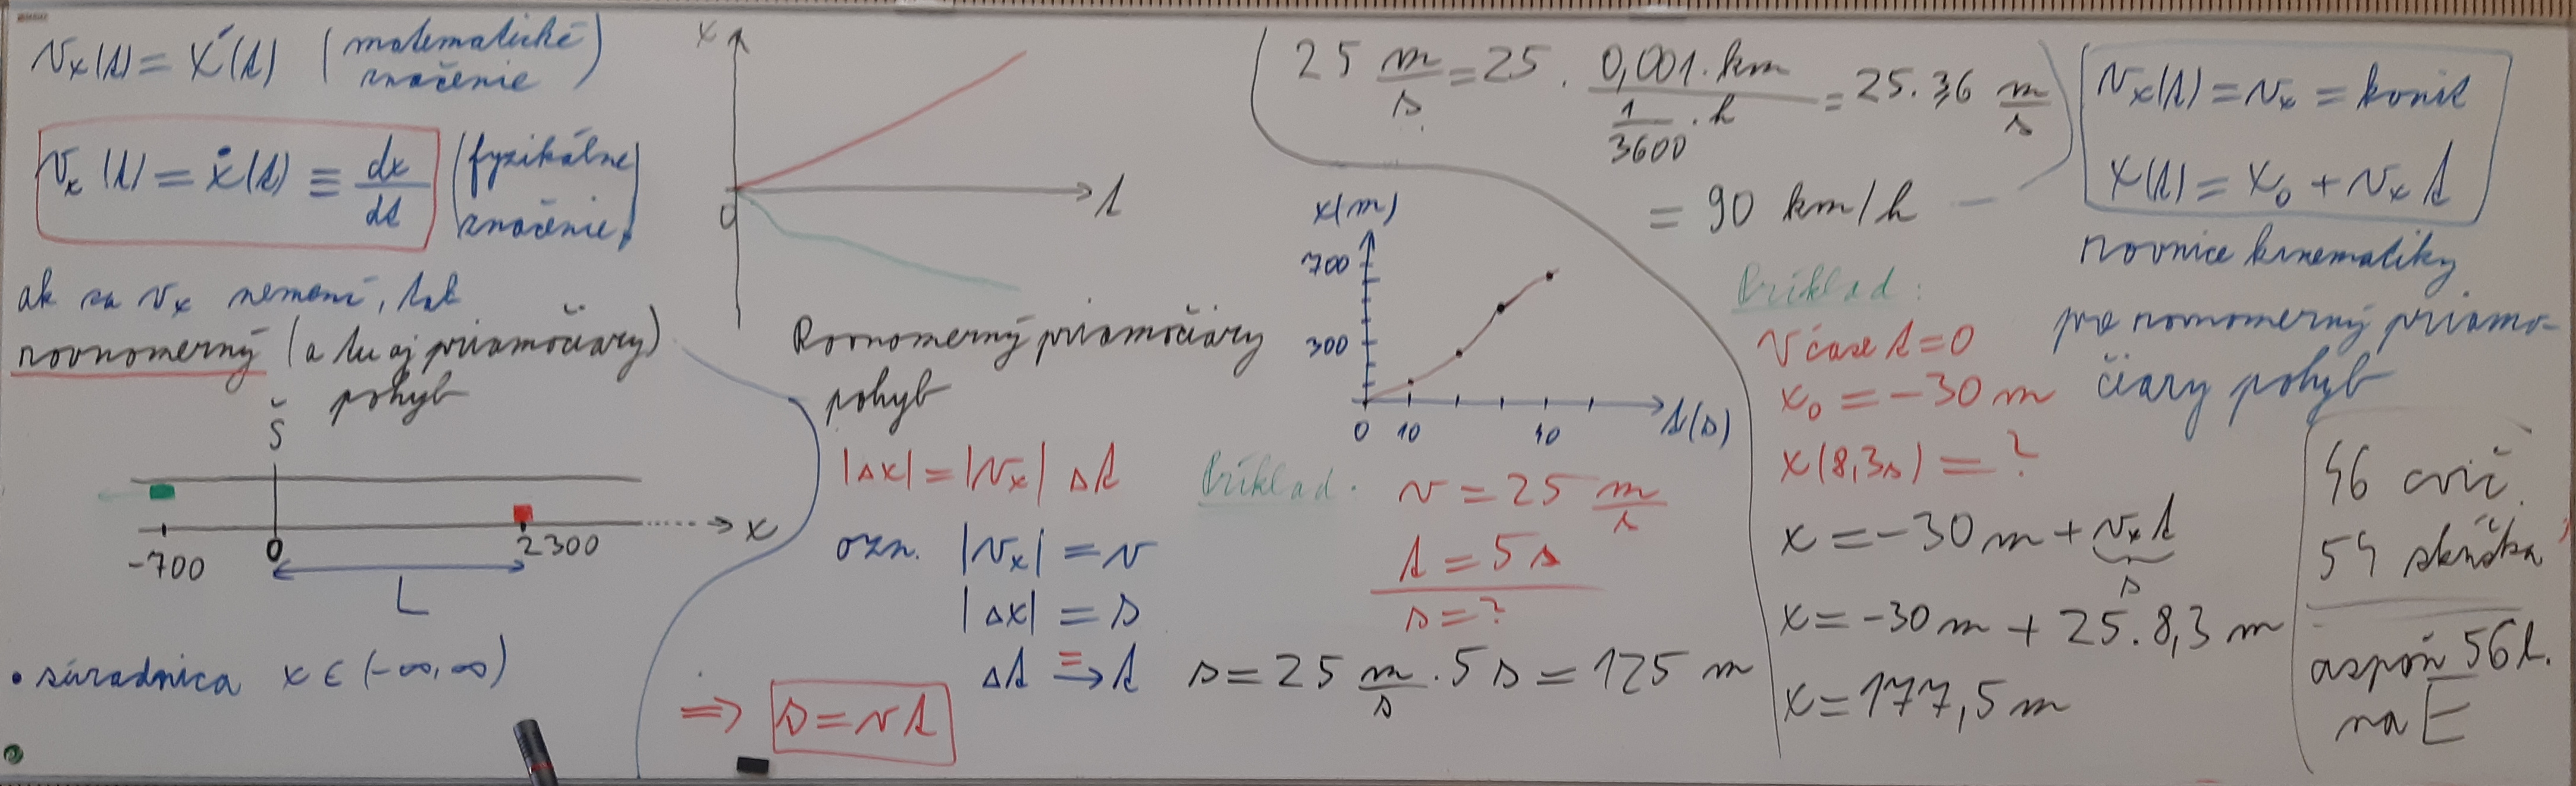 v_x(t) = x'(t) (matematické značenie)
v_x(t) = ẋ(t) ≡ dx/dt (fyzikálne značenie)
ak sa v_x nemení, tak
rovnomerný (a tu aj priamočiary)
pohyb
Š
-700 0 2300 x
L
• súradnica x ∈ (-∞, ∞)
x
0 t
Rovnomerný priamočiary
pohyb
|Δx| = |v_x| Δt
ozn. |v_x| = v
|Δx| = s
Δt → t
⇒ s = v t
25 m/s = 25 · 0,001·km / (1/3600 · h) = 25·3,6 m/s
= 90 km/h
x(m)
700
300
0 10 40 t(s)
Príklad:
v = 25 m/s
t = 5 s
s = ?
s = 25 m/s · 5 s = 125 m
v_x(t) = v_x = konšt
x(t) = x_0 + v_x t
rovnice kinematiky
pre rovnomerný priamo-
čiary pohyb
Príklad:
V čase t = 0
x_0 = -30 m
x(8,3s) = ?
x = -30 m + v_x t
s
x = -30 m + 25 . 8,3 m
x = 177,5 m
46 cvič.
54 skúška
aspoň 56 b.
na E